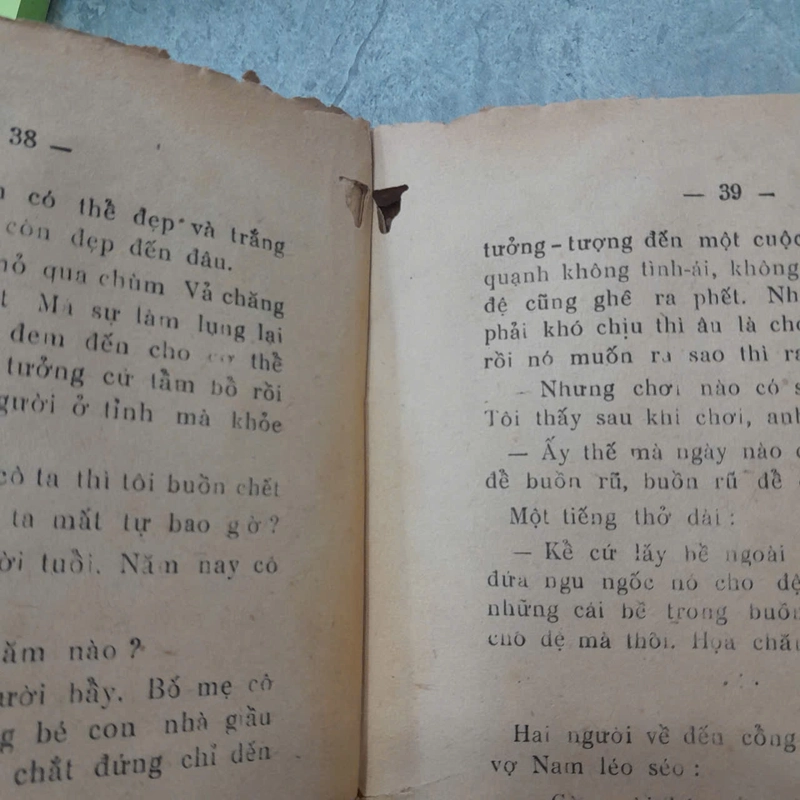 38 —
có thể đẹp và trắng
còn dẹp đến đâu.
qua chùm Vả chăng
Mà sự làm lụng lại
đem đến cho cơ thể
tưởng cứ tầm bồ rồi
người ở tỉnh mà khỏe
cô ta thì tôi buồn chết
ta mất tự bao gờ?
tuổi. Năm nay cô
năm nào?
người hầy. Bố mẹ cô
bé con nhà giầu
chắt đứng chỉ dến
— 39 —
tưởng-tượng đến một cuộc
quạnh không tình-ái, không
đệ cũng ghê ra phết.
phải khó chịu thì âu là
rồi nó muốn ra sao thì
— Nhưng chơi nào có
Tôi thấy sau khi chơi, anh
— Ấy thế mà ngày nào
để buồn rũ, buồn rũ để
Một tiếng thở dài :
— Kể cứ lấy bề ngoài
đứa ngu ngốc nó cho
những cái bề trong buồn
cho dệ mà thôi. Họa
Hai người về dến cồng
vợ Nam léo séo :